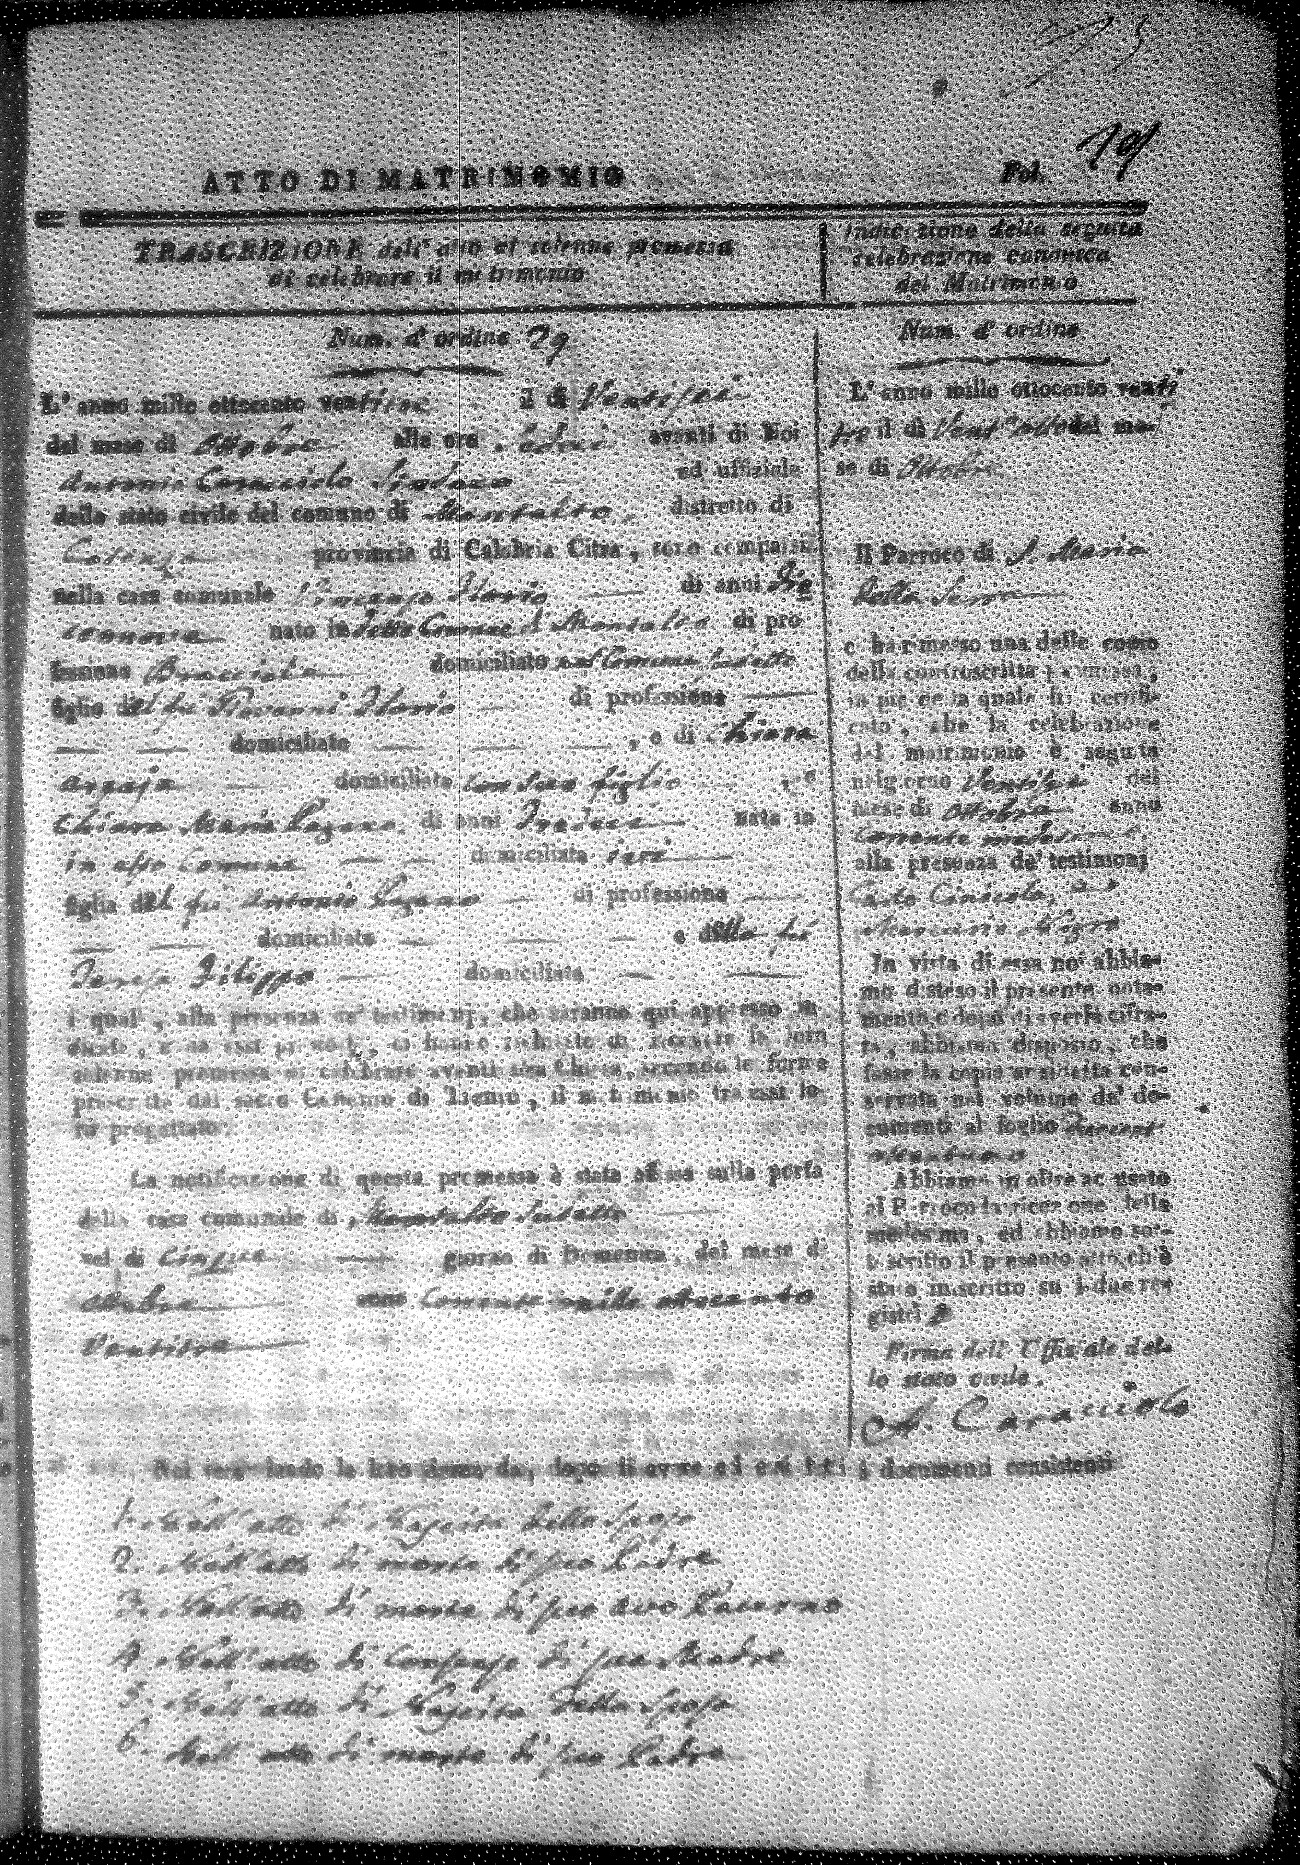 19
ATTO DI MATRIMONIO Fol.
TRASCRIZIONE dell' atto di solenne promessa
di celebrare il matrimonio
Num. d' ordine 29
L' anno mille ottocento ventitre il dì Ventisei
del mese di Ottobre alle ore avanti di Noi
Antonio Caracciolo Sindaco ed uffiziale
dello stato civile del comune di Montalto distretto di
Cosenza provincia di Calabria Citra, sono comparsi
nella casa comunale Vincenzo Ilario di anni Die
cenove nato in detto Comune di Montalto di pro
fessione Bracciale domiciliato nel Comune sudetto
figlio del fu Giovanni Ilario di professione
domiciliato , e di Chiara
domiciliata con suo figlio , e
Chiara Maria Pagano di anni Tredici nata in
in esso Comune domiciliata ivi
figlia del fu Antonio Pagano di professione
domiciliato e della fu
Teresa Filippo domiciliata
i quali, alla presenza de' testimonj, che saranno qui appresso in-
dicati, e da essi prodotti, ci hanno richiesto di ricevere la loro
solenne promessa di celebrare avanti alla Chiesa, secondo le forme
prescritte dal sacro Concilio di Trento, il matrimonio tra essi lo-
ro progettato.
La notificazione di questa promessa è stata affissa sulla porta
della casa comunale di Montalto sudetto
nel dì Cinque giorno di Domenica, del mese d'
ottobre Corrente mille ottocento
Ventitre
Indicazione della seguita
celebrazione canonica
del Matrimonio
Num. d' ordine
L' anno mille ottocento venti
tre il dì Vent'otto del me-
se di Ottobre
Il Parroco di S. Maria
Della Serra
ci ha rimesso una delle copie
della controscritta promessa,
in piè della quale ha certifi-
cato, che la celebrazione
del matrimonio è seguita
nel giorno Ventisei del
mese di Ottobre anno
Corrente medesimo
alla presenza de' testimonj
In vista di essa noi abbia-
mo disteso il presente nota-
mento, e dopo di averla cifra-
ta, abbiamo disposto, che
fosse la copia anzidetta con-
servata nel volume de' do-
cumenti al foglio
Abbiamo in oltre accusato
al Parroco la ricezione della
medesima, ed abbiamo sot-
toscritto il presente atto, ch' è
stato inscritto su i due re-
gistri
Firma dell' Uffiziale del-
lo stato civile.
A. Caracciolo
Noi secondando la loro domanda, dopo di aver ad essi letti i documenti consistenti
1. Nell' atto di Nascita dello Sposo
2. Nell' atto di morte di suo Padre
3. Nell' atto di morte di suo avo Paterno
4. Nell' atto di Consenso di sua Madre
5. Nell' atto di Nascita della Sposa
6. Nell' atto di morte di suo Padre